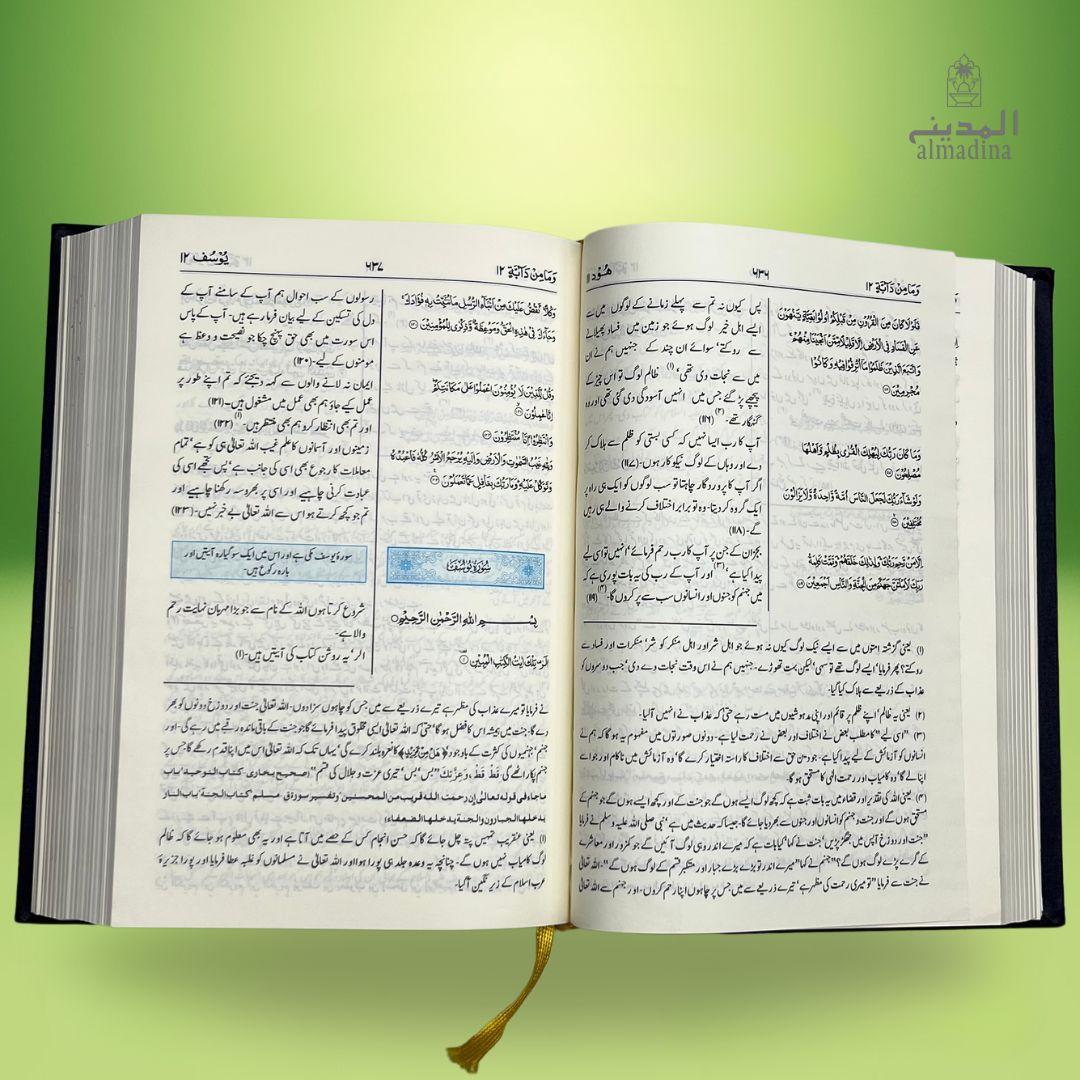 المدينة
almadina
وَمَا مِنْ دَآبَّةٍ ١٢
٦٣٦
هُوْد ١١
فَلَوْلَا كَانَ مِنَ الْقُرُوْنِ مِنْ قَبْلِكُمْ اُولُوْا بَقِيَّةٍ يَّنْهَوْنَ
عَنِ الْفَسَادِ فِى الْاَرْضِ اِلَّا قَلِيْلًا مِّمَّنْ اَنْجَيْنَا مِنْهُمْ
وَاتَّبَعَ الَّذِيْنَ ظَلَمُوْا مَآ اُتْرِفُوْا فِيْهِ وَكَانُوْا
مُجْرِمِيْنَ
وَمَا كَانَ رَبُّكَ لِيُهْلِكَ الْقُرٰى بِظُلْمٍ وَّاَهْلُهَا
مُصْلِحُوْنَ
وَلَوْ شَآءَ رَبُّكَ لَجَعَلَ النَّاسَ اُمَّةً وَّاحِدَةً وَّلَا يَزَالُوْنَ
مُخْتَلِفِيْنَ
اِلَّا مَنْ رَّحِمَ رَبُّكَ وَلِذٰلِكَ خَلَقَهُمْ وَتَمَّتْ كَلِمَةُ
رَبِّكَ لَاَمْلَئَنَّ جَهَنَّمَ مِنَ الْجِنَّةِ وَالنَّاسِ اَجْمَعِيْنَ
پس کیوں نہ تم سے پہلے زمانے کے لوگوں میں سے
ایسے اہل خیر لوگ ہوئے جو زمین میں فساد پھیلانے
سے روکتے، سوائے ان چند کے جنہیں ہم نے ان
میں سے نجات دی تھی، (۱) ظالم لوگ تو اس چیز کے
پیچھے پڑ گئے جس میں انہیں آسودگی دی گئی تھی اور وہ
گنہگار تھے۔ (۲) (۱۱۶)
آپ کا رب ایسا نہیں کہ کسی بستی کو ظلم سے ہلاک کر
دے اور وہاں کے لوگ نیکوکار ہوں۔ (۱۱۷)
اگر آپ کا پروردگار چاہتا تو سب لوگوں کو ایک ہی راہ پر
ایک گروہ کر دیتا۔ وہ تو برابر اختلاف کرنے والے ہی رہیں
گے۔ (۱۱۸)
بجز ان کے جن پر آپ کا رب رحم فرمائے، انہیں تو اسی لیے
پیدا کیا ہے، (۳) اور آپ کے رب کی یہ بات پوری ہے کہ
میں جہنم کو جنوں اور انسانوں سب سے پر کروں گا۔ (۴) (۱۱۹)
(۱) یعنی گزشتہ امتوں میں سے ایسے نیک لوگ کیوں نہ ہوئے جو اہل شر اور اہل منکر کو شر، منکرات اور فساد سے
روکتے؟ پھر فرمایا، ایسے لوگ تھے تو سہی، لیکن بہت تھوڑے۔ جنہیں ہم نے اس وقت نجات دے دی، جب دوسروں کو
عذاب کے ذریعے سے ہلاک کیا گیا۔
(۲) یعنی یہ ظالم، اپنے ظلم پر قائم اور اپنی مدہوشیوں میں مست رہے حتیٰ کہ عذاب نے انہیں آلیا۔
(۳) "اسی لیے" کا مطلب بعض نے اختلاف اور بعض نے رحمت لیا ہے۔ دونوں صورتوں میں مفہوم یہ ہو گا کہ ہم نے
انسانوں کو آزمائش کے لیے پیدا کیا ہے۔ جو دین حق سے اختلاف کا راستہ اختیار کرے گا، وہ آزمائش میں ناکام اور جو اسے
اپنا لے گا، وہ کامیاب اور رحمت الٰہی کا مستحق ہو گا۔
(۴) یعنی اللہ کی تقدیر اور قضاء میں یہ بات ثبت ہے کہ کچھ لوگ ایسے ہوں گے جو جنت کے اور کچھ ایسے ہوں گے جو جہنم کے
مستحق ہوں گے اور جنت و جہنم کو انسانوں اور جنوں سے بھر دیا جائے گا۔ جیسا کہ حدیث میں ہے، نبی صلی اللہ علیہ وسلم نے فرمایا
"جنت اور دوزخ آپس میں جھگڑ پڑیں، جنت نے کہا، کیا بات ہے کہ میرے اندر وہی لوگ آئیں گے جو کمزور اور معاشرے
کے گرے پڑے لوگ ہوں گے؟" جہنم نے کہا "میرے اندر تو بڑے بڑے جبار اور متکبر قسم کے لوگ ہوں گے"۔ اللہ تعالیٰ
نے جنت سے فرمایا "تو میری رحمت کی مظہر ہے، تیرے ذریعے سے میں جس پر چاہوں اپنا رحم کروں۔ اور جہنم سے اللہ تعالیٰ
وَمَا مِنْ دَآبَّةٍ ١٢
٦٣٧
يُوْسُف ١٢
وَكُلًّا نَّقُصُّ عَلَيْكَ مِنْ اَنْۢبَآءِ الرُّسُلِ مَا نُثَبِّتُ بِهٖ فُؤَادَكَ
وَجَآءَكَ فِيْ هٰذِهِ الْحَقُّ وَمَوْعِظَةٌ وَّذِكْرٰى لِلْمُؤْمِنِيْنَ
وَقُلْ لِّلَّذِيْنَ لَا يُؤْمِنُوْنَ اعْمَلُوْا عَلٰى مَكَانَتِكُمْ
اِنَّا عٰمِلُوْنَ
وَانْتَظِرُوْا اِنَّا مُنْتَظِرُوْنَ
وَلِلّٰهِ غَيْبُ السَّمٰوٰتِ وَالْاَرْضِ وَاِلَيْهِ يُرْجَعُ الْاَمْرُ كُلُّهٗ فَاعْبُدْهُ
وَتَوَكَّلْ عَلَيْهِ وَمَا رَبُّكَ بِغَافِلٍ عَمَّا تَعْمَلُوْنَ
سُوْرَةُ يُوْسُفَ
بِسْمِ اللهِ الرَّحْمٰنِ الرَّحِيْمِ
الٓرٰ تِلْكَ اٰيٰتُ الْكِتٰبِ الْمُبِيْنِ
رسولوں کے سب احوال ہم آپ کے سامنے آپ کے
دل کی تسکین کے لیے بیان فرما رہے ہیں۔ آپ کے پاس
اس سورت میں بھی حق پہنچ چکا جو نصیحت و وعظ ہے
مومنوں کے لیے۔ (۱۲۰)
ایمان نہ لانے والوں سے کہہ دیجئے کہ تم اپنے طور پر
عمل کیے جاؤ ہم بھی عمل میں مشغول ہیں۔ (۱۲۱)
اور تم بھی انتظار کرو ہم بھی منتظر ہیں۔ (۱) (۱۲۲)
زمینوں اور آسمانوں کا علم غیب اللہ تعالیٰ ہی کو ہے، تمام
معاملات کا رجوع بھی اسی کی جانب ہے، پس تجھے اسی کی
عبادت کرنی چاہیے اور اسی پر بھروسہ رکھنا چاہیے اور
تم جو کچھ کرتے ہو اس سے اللہ تعالیٰ بے خبر نہیں۔ (۱۲۳)
سورۂ یوسف مکی ہے اور اس میں ایک سو گیارہ آیتیں اور
بارہ رکوع ہیں۔
شروع کرتا ہوں اللہ کے نام سے جو بڑا مہربان نہایت رحم
والا ہے۔
الر، یہ روشن کتاب کی آیتیں ہیں۔ (۱)
نے فرمایا تو میرے عذاب کی مظہر ہے تیرے ذریعے سے میں جس کو چاہوں سزا دوں۔ اللہ تعالیٰ جنت اور دوزخ دونوں کو بھر
دے گا۔ جنت میں ہمیشہ اس کا فضل ہو گا، حتیٰ کہ اللہ تعالیٰ ایسی مخلوق پیدا فرمائے گا جو جنت کے باقی ماندہ رقبے میں رہے گی۔ اور
جہنم، جہنمیوں کی کثرت کے باوجود ﴿هَلْ مِنْ مَّزِيْدٍ﴾ کا نعرہ بلند کرے گی، یہاں تک کہ اللہ تعالیٰ اس میں اپنا قدم رکھے گا جس پر
جہنم پکار اٹھے گی، قَطْ قَطْ، وَعِزَّتِكَ "بس، بس، تیری عزت و جلال کی قسم" (صحیح بخاری کتاب التوحید باب
ماجاء فی قوله تعالیٰ إن رحمت الله قریب من المحسنین وتفسیر سورة ق۔ مسلم کتاب الجنة باب النار
یدخلها الجبارون والجنة یدخلها الضعفاء)
(۱) یعنی عنقریب تمہیں پتہ چل جائے گا کہ حسن انجام کس کے حصے میں آتا ہے اور یہ بھی معلوم ہو جائے گا کہ ظالم
لوگ کامیاب نہیں ہوں گے۔ چنانچہ یہ وعدہ جلد ہی پورا ہوا اور اللہ تعالیٰ نے مسلمانوں کو غلبہ عطا فرمایا اور پورا جزیرۂ
عرب اسلام کے زیر نگین آگیا۔